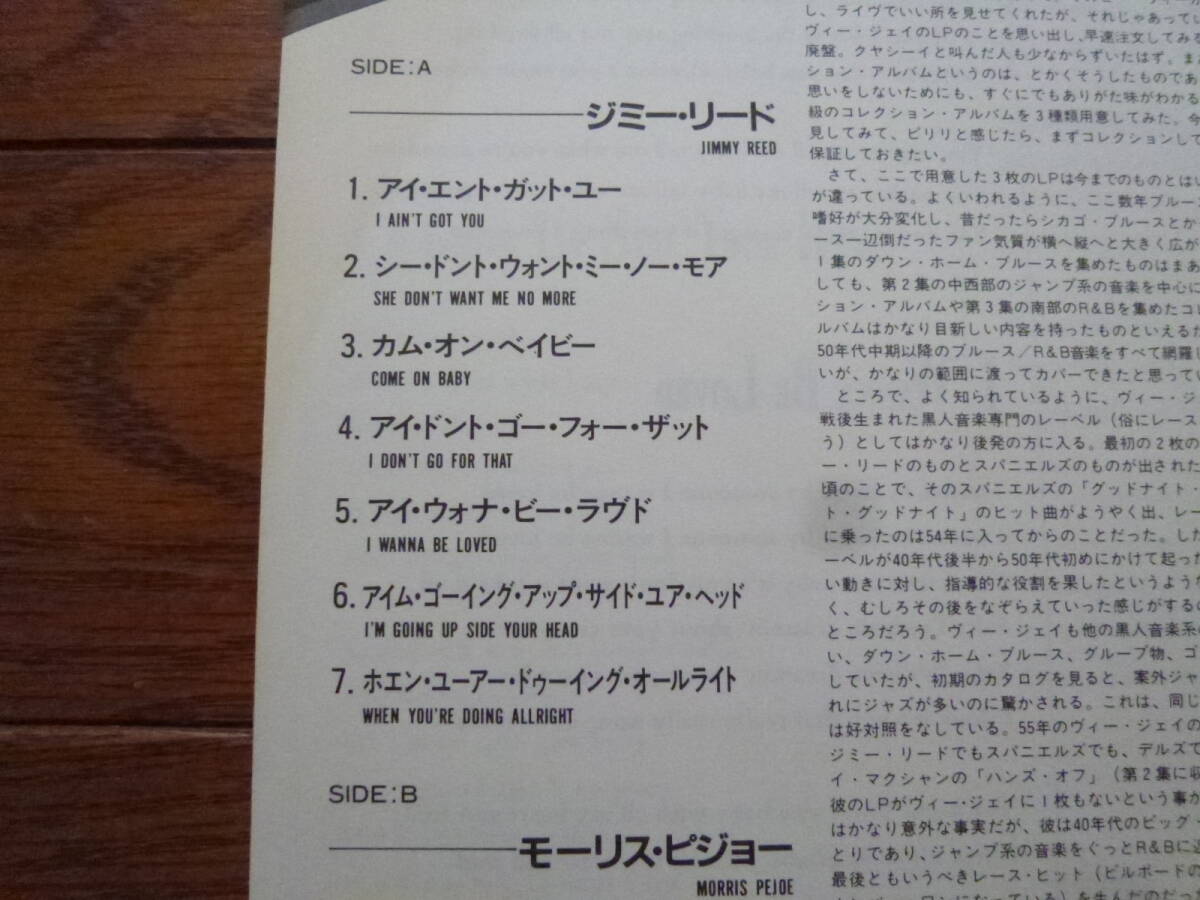 SIDE:A
ジミー・リード
JIMMY REED
1. アイ・エント・ガット・ユー
I AIN'T GOT YOU
2. シー・ドント・ウォント・ミー・ノー・モア
SHE DON'T WANT ME NO MORE
3. カム・オン・ベイビー
COME ON BABY
4. アイ・ドント・ゴー・フォー・ザット
I DON'T GO FOR THAT
5. アイ・ウォナ・ビー・ラヴド
I WANNA BE LOVED
6. アイム・ゴーイング・アップ・サイド・ユア・ヘッド
I'M GOING UP SIDE YOUR HEAD
7. ホエン・ユーアー・ドゥーイング・オールライト
WHEN YOU'RE DOING ALLRIGHT
SIDE:B
モーリス・ピジョー
MORRIS PEJOE
し、ライヴでいい所を見せてくれたが、それじゃあって
ヴィー・ジェイのLPのことを思い出し、早速注文してみる
廃盤。クヤシーイと叫んだ人も少なからずいたはず。ま
ション・アルバムというのは、とかくそうしたものであ
思いをしないためにも、すぐにでもありがた味がわかる
級のコレクション・アルバムを3種類用意してみた。今
見してみて、ビリリと感じたら、まずコレクションして
保証しておきたい。
さて、ここで用意した3枚のLPは今までのものとはい
が違っている。よくいわれるように、ここ数年ブルース
嗜好が大分変化し、昔だったらシカゴ・ブルースとか
ース一辺倒だったファン気質が横へ縦へと大きく広が
1集のダウン・ホーム・ブルースを集めたものはまあ
しても、第2集の中西部のジャンプ系の音楽を中心に
ション・アルバムや第3集の南部のR&Bを集めたコレ
ルバムはかなり目新しい内容を持ったものといえるだ
50年代中期以降のブルース/R&B音楽をすべて網羅し
いが、かなりの範囲に渡ってカバーできたと思ってい
ところで、よく知られているように、ヴィー・ジ
戦後生まれた黒人音楽専門のレーベル(俗にレース
う)としてはかなり後発の方に入る。最初の2枚の
ー・リードのものとスパニエルズのものが出された
頃のことで、そのスパニエルズの「グッドナイト・
ト・グッドナイト」のヒット曲がようやく出、レー
に乗ったのは54年に入ってからのことだった。した
ーベルが40年代後半から50年代初めにかけて起った
い動きに対し、指導的な役割を果したというよう
く、むしろその後をなぞらえていった感じがするの
ところだろう。ヴィー・ジェイも他の黒人音楽系
い、ダウン・ホーム・ブルース、グループ物、ゴ
していたが、初期のカタログを見ると、案外ジャ
れにジャズが多いのに驚かされる。これは、同じ
は好対照をなしている。55年のヴィー・ジェイの
ジミー・リードでもスパニエルズでも、デルズで
イ・マクシャンの「ハンズ・オフ」(第2集に収
彼のLPがヴィー・ジェイに1枚もないという事が
はかなり意外な事実だが、彼は40年代のビッグ・
とりであり、ジャンプ系の音楽をぐっとR&Bに近
最後ともいうべきレース・ヒット(ビルボードの